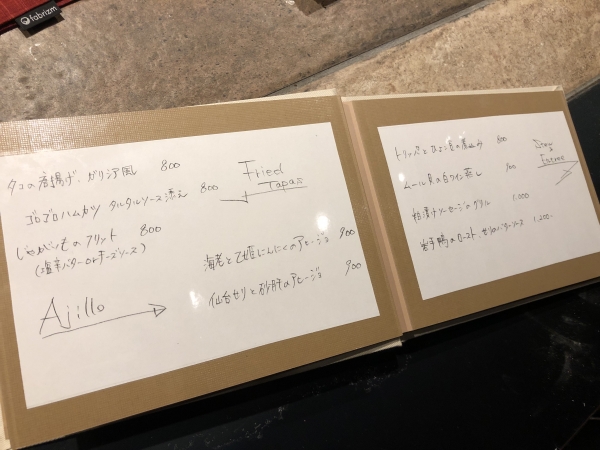 fabrizm
タコの唐揚げ、ガリシア風 800
Fried
Tapas
ゴロゴロハムカツ タルタルソース添え 800
じゃがいものフリット 800
(塩辛バター or チーズソース)
Ajillo
海老と乙姫にんにくのアヒージョ 900
仙台セリと砂肝のアヒージョ 900
トリッパとひよこ豆の煮込み 800
ムール貝の白ワイン蒸し 900
粕漬けソーセージのグリル 1.000
岩手鴨のロースト、セリのバターソース 1.200-